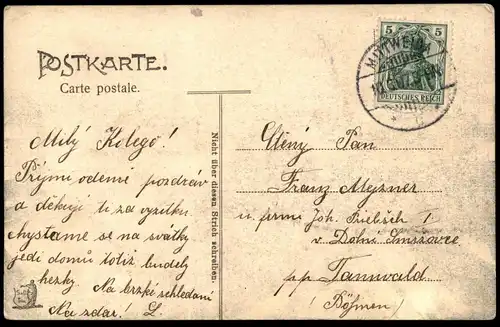 POSTKARTE.
Carte postale.
Milý Kolego!
Přijmi odemě pozdráv
a děkuji ti za vyzitku
chystame se na svátky
jedi domů totiž budely
hezky. Na brzké schledaní
Na zdar! L
Nicht über diesen Strich schreiben.
5 5
DEUTSCHES REICH
MITTWEIDA
Ctěný Pan
Franz Meyzner
u firmy Joh. 1
v Dolní
pp Tannwald
(Böhmen)